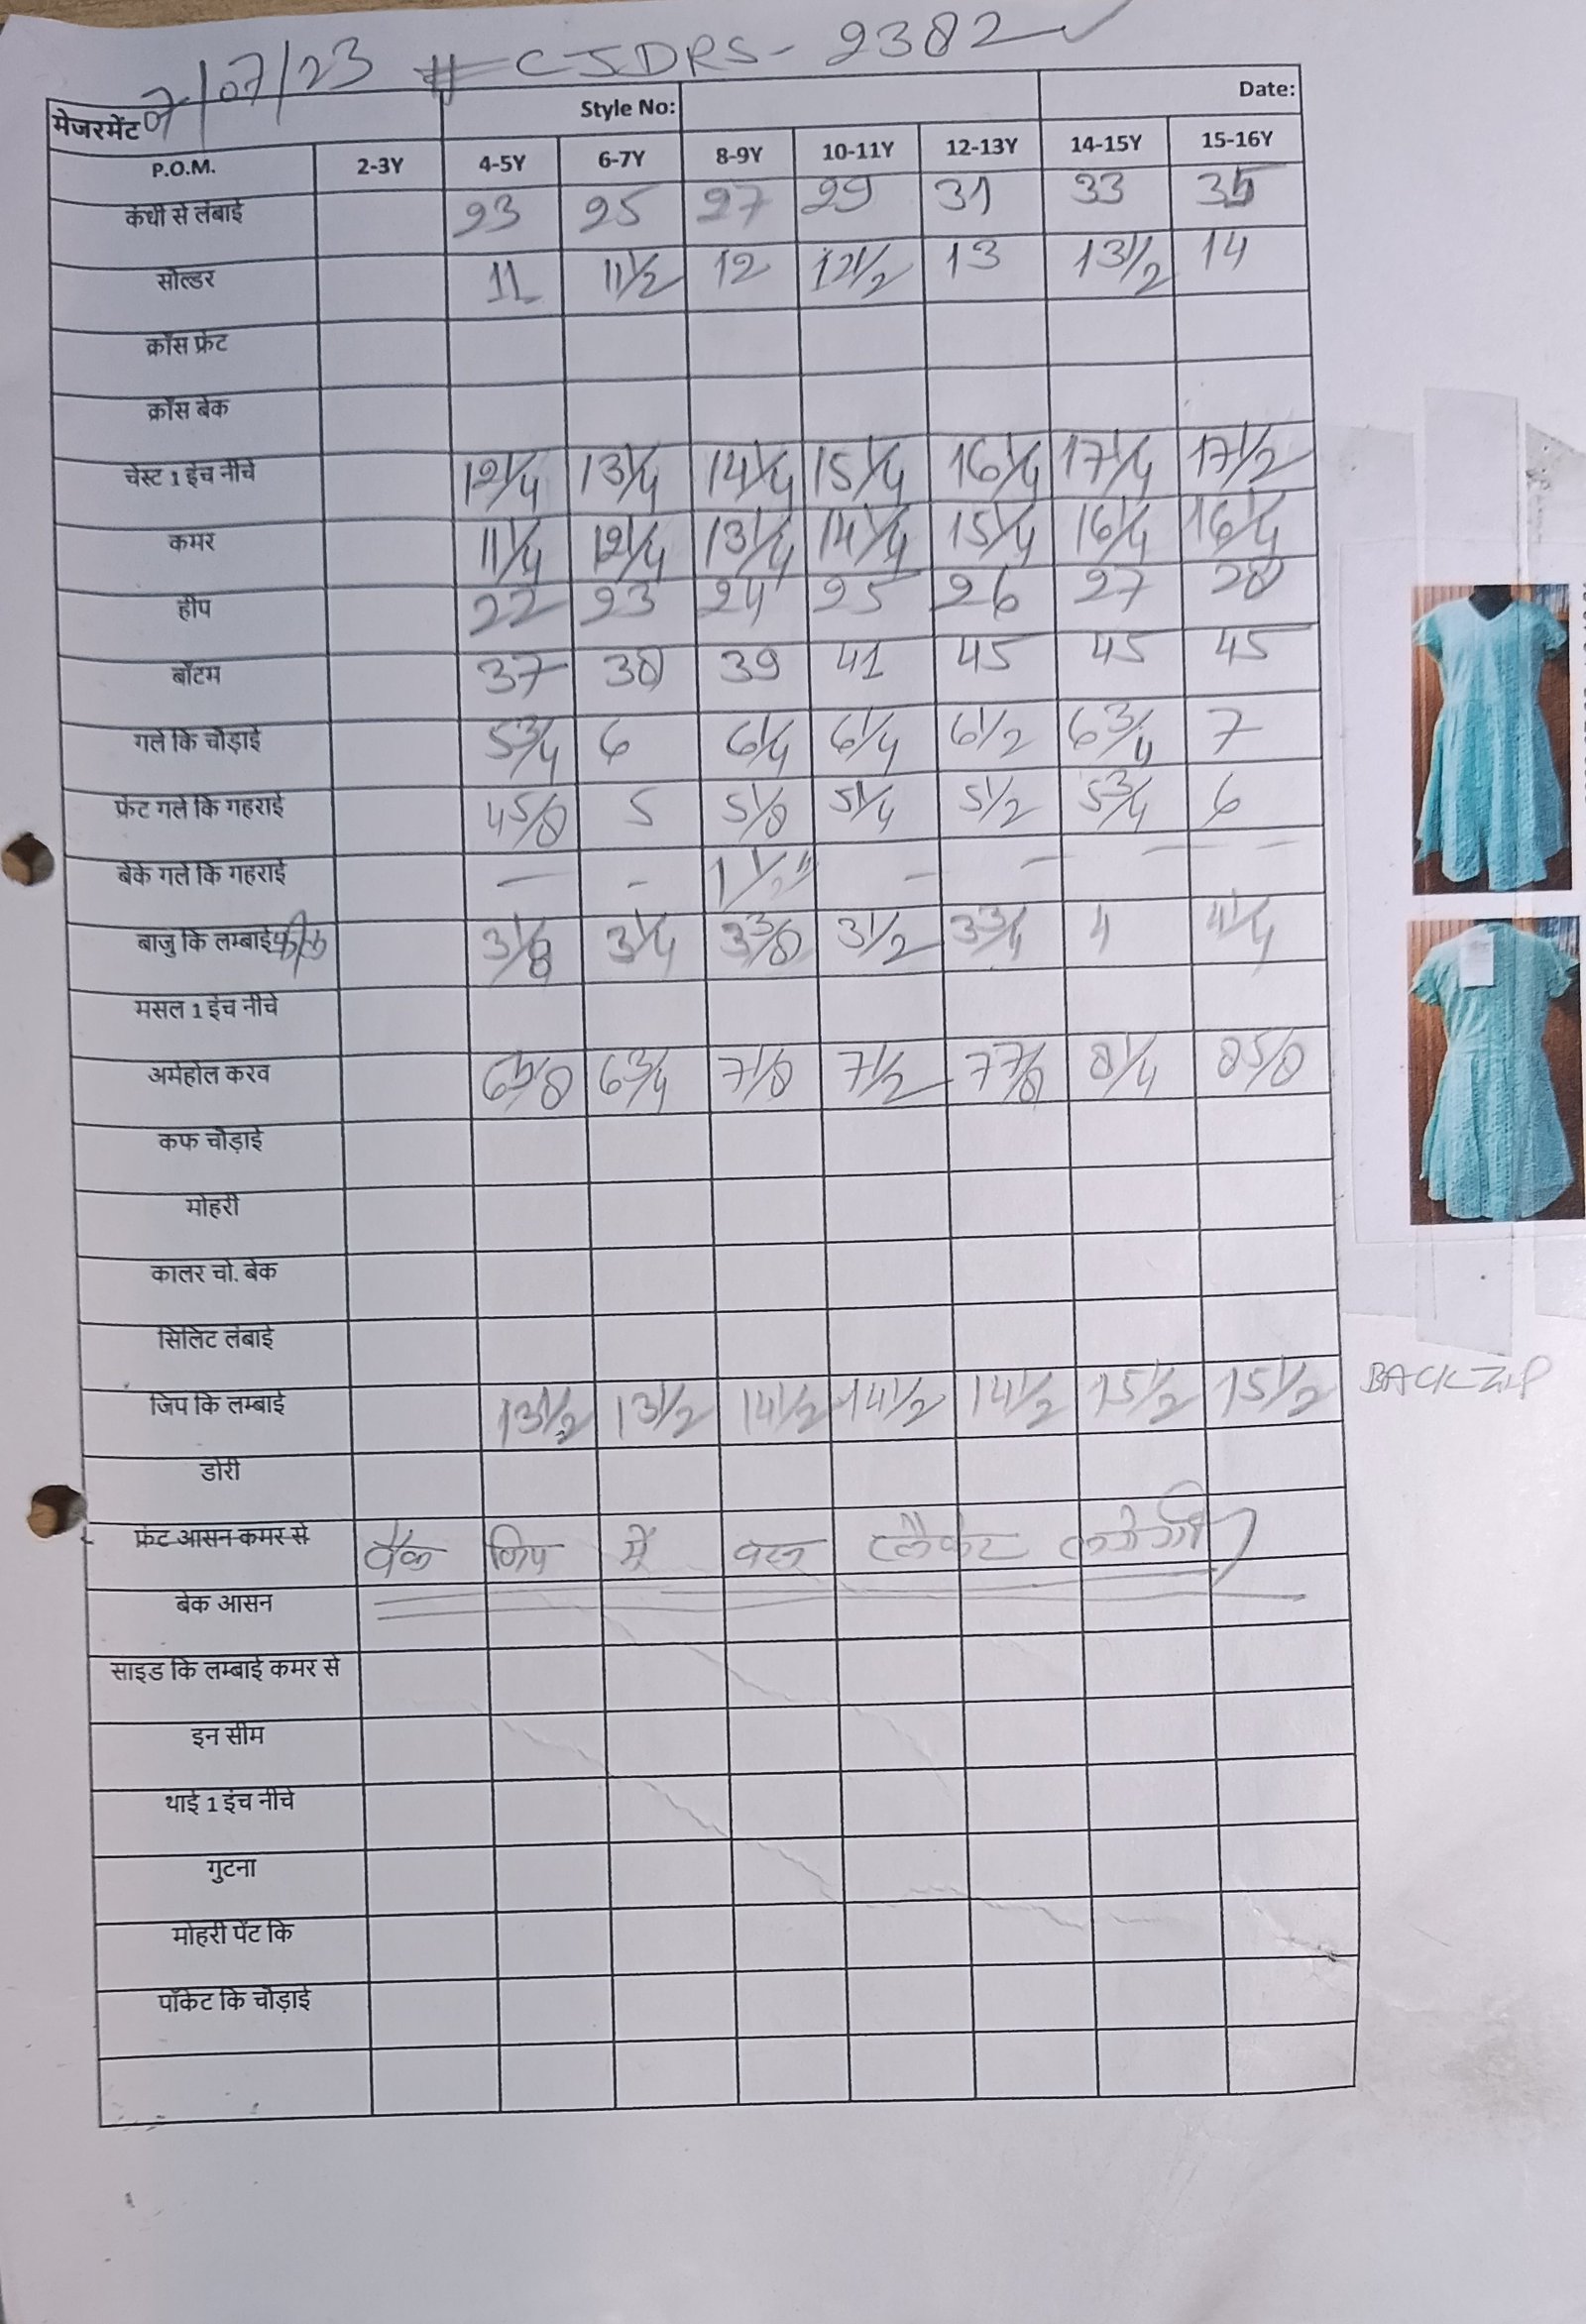 07/07/23 # CJDRS- 2382
मेजरमेंट Style No: Date:
P.O.M. 2-3Y 4-5Y 6-7Y 8-9Y 10-11Y 12-13Y 14-15Y 15-16Y
कंधी से लंबाई 23 25 27 29 31 33 35
सोल्डर 11 11 1/2 12 12 1/2 13 13 1/2 14
क्रॉस फ्रंट
क्रॉस बेक
चेस्ट 1 इंच नीचे 12 1/4 13 1/4 14 1/4 15 1/4 16 1/4 17 1/4 17 1/2
कमर 11 1/4 12 1/4 13 1/4 14 1/4 15 1/4 16 1/4 16 1/4
हीप 22 23 24 25 26 27 28
बॉटम 37 38 39 41 45 45 45
गले कि चौड़ाई 5 3/4 6 6 1/4 6 1/4 6 1/2 6 3/4 7
फ्रंट गले कि गहराई 4 5/8 5 5 1/8 5 1/4 5 1/2 5 3/4 6
बेके गले कि गहराई — - 1 1/2" - - - -
बाजु कि लम्बाई 3 1/8 3 1/4 3 3/8 3 1/2 3 3/4 4 4 1/4
मसल 1 इंच नीचे
अर्महोल करव 6 3/4 7 1/8 7 1/2 7 7/8 8 1/4 8 5/8
कफ चौड़ाई
मोहरी
कालर चो. बेक
सिलिट लंबाई
जिप कि लम्बाई 13 1/2 13 1/2 14 1/2 14 1/2 14 1/2 15 1/2 15 1/2 BACK ZIP
डोरी
फ्रंट आसन कमर से बैक जिप में लगेगी
बेक आसन
साइड कि लम्बाई कमर से
इन सीम
थाई 1 इंच नीचे
गुटना
मोहरी पेंट कि
पॉकेट कि चौड़ाई